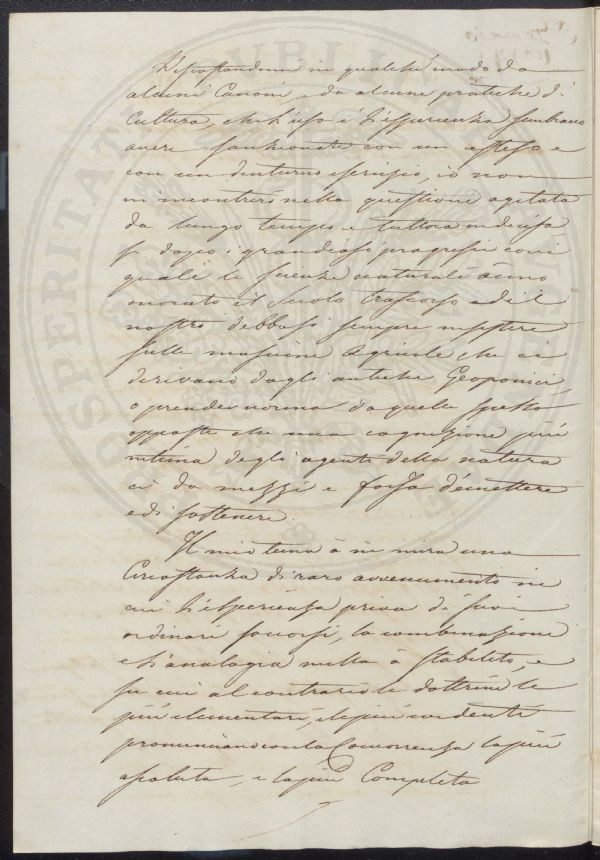 in qualche modo da
alcuni Canoni, e da alcune pratiche di
Cultura, che l'uso e l'esperienza sembrano
avere sanzionate con un
con un esercizio, io non
m'incontrerò nella questione agitata
da lungo tempo e tuttora indecisa
se dopo i grandiosi progressi con i
quali le scienze naturali ànno
onorato il secolo trascorso ed il
nostro debbasi sempre
sulle massime Agricole che ci
derivano dagli antichi Geoponici
o prender norma da quelle spesso
opposte che una cognizione più
intima degli agenti della natura
ci da mezzi e forza d'emettere
e di sostenere.
Il mio tema à in mira una
Circostanza di raro avvenimento in
cui l'esperienza priva di suoi
ordinari soccorsi, la combinazione
e l'analogia nulla à stabilito, e
su cui al contrario le dottrine le
più elementari, e le più evidenti
pronunciano con la Concorrenza la più
assoluta, e la più Completa
PROSPERITATI PUBLICAE AUGENDAE